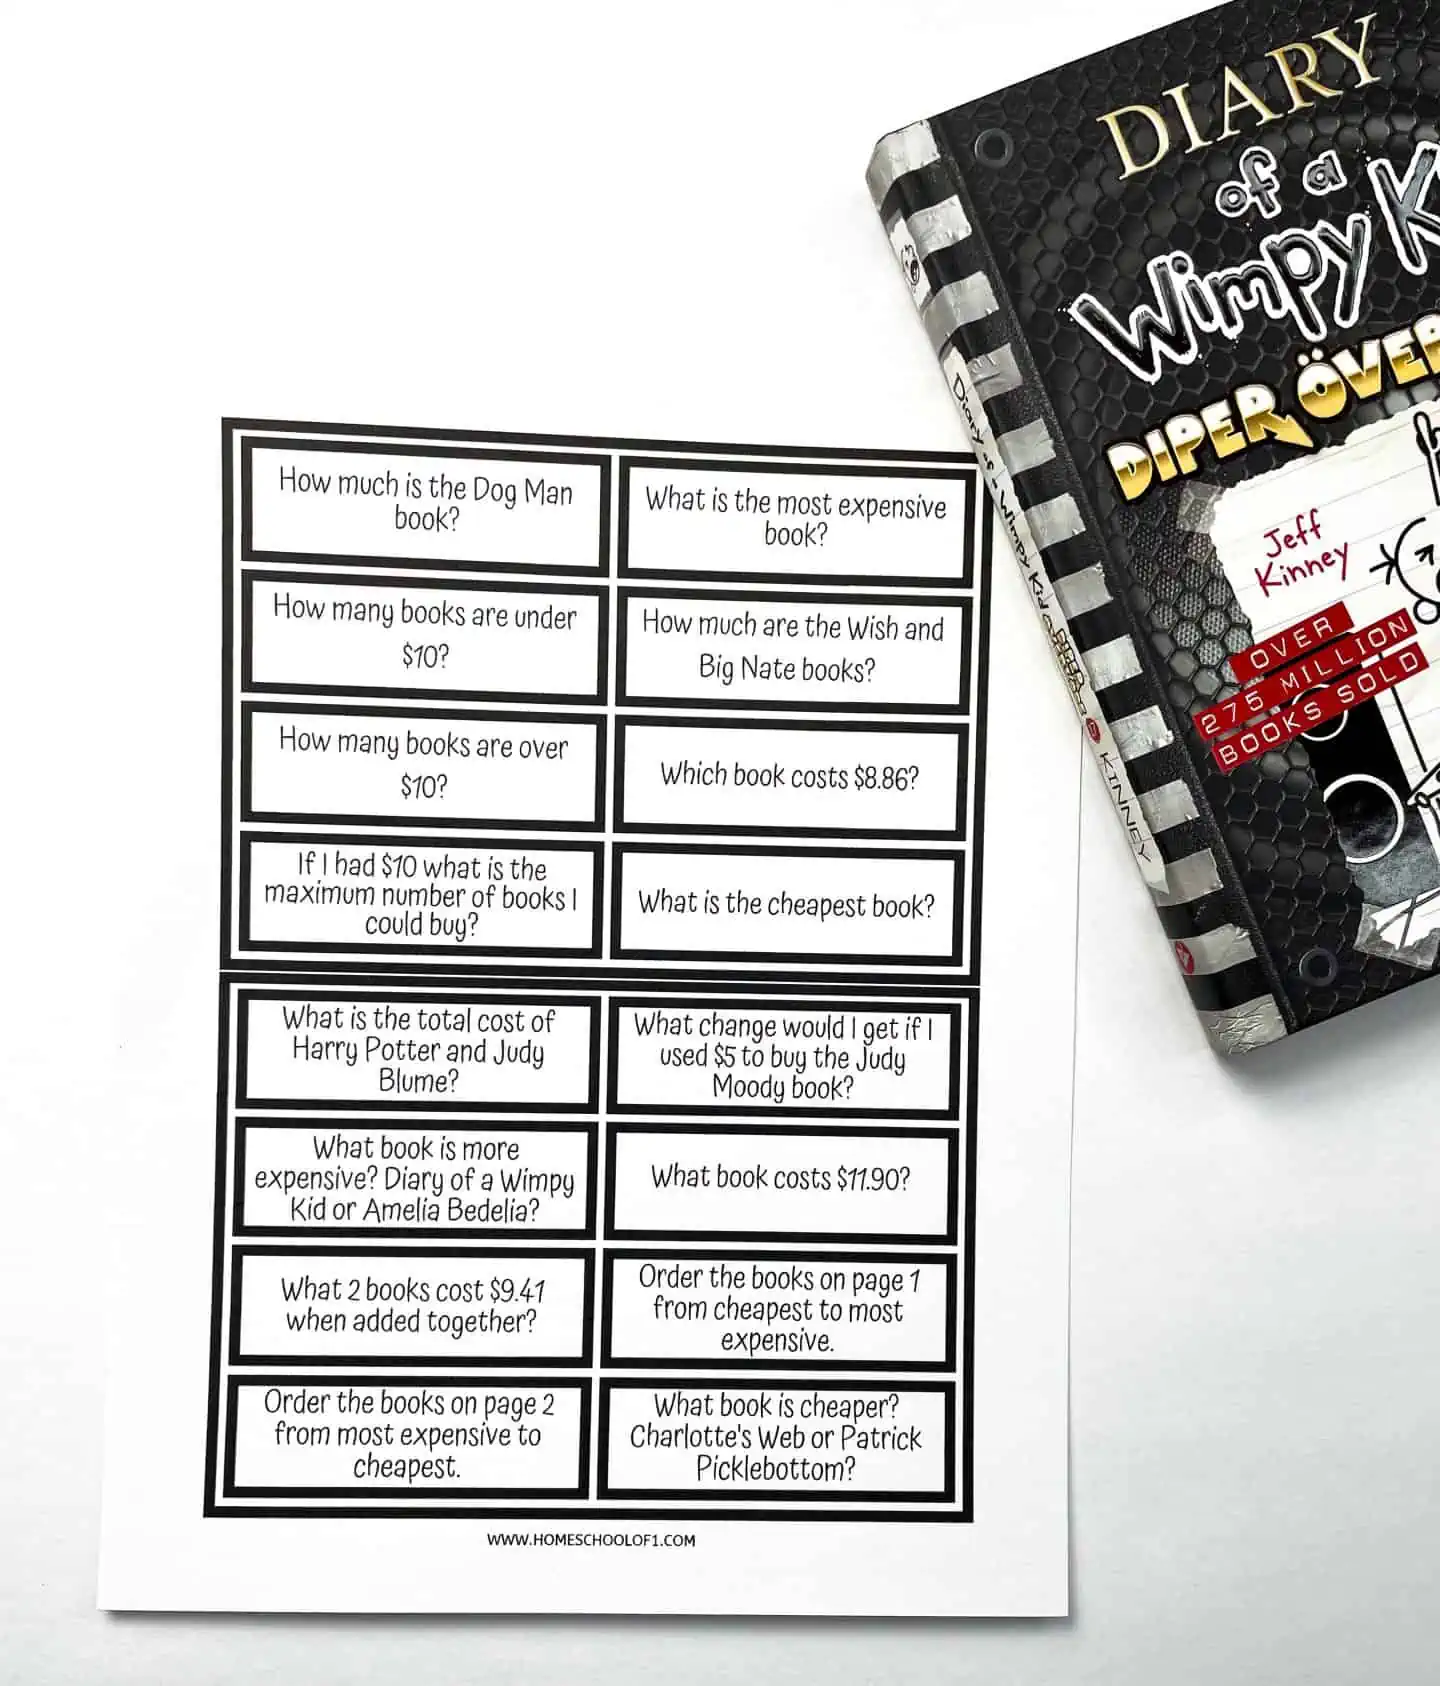 DIARY
of a
Wimpy K
DIPER ÖVER
Jeff
Kinney
OVER
275 MILLION
BOOKS SOLD
Diary of a Wimpy Kid
KINNEY
How much is the Dog Man
book?
What is the most expensive
book?
How many books are under
$10?
How much are the Wish and
Big Nate books?
How many books are over
$10?
Which book costs $8.86?
If I had $10 what is the
maximum number of books I
could buy?
What is the cheapest book?
What is the total cost of
Harry Potter and Judy
Blume?
What change would I get if I
used $5 to buy the Judy
Moody book?
What book is more
expensive? Diary of a Wimpy
Kid or Amelia Bedelia?
What book costs $11.90?
What 2 books cost $9.41
when added together?
Order the books on page 1
from cheapest to most
expensive.
Order the books on page 2
from most expensive to
cheapest.
What book is cheaper?
Charlotte's Web or Patrick
Picklebottom?
WWW.HOMESCHOOLOF1.COM